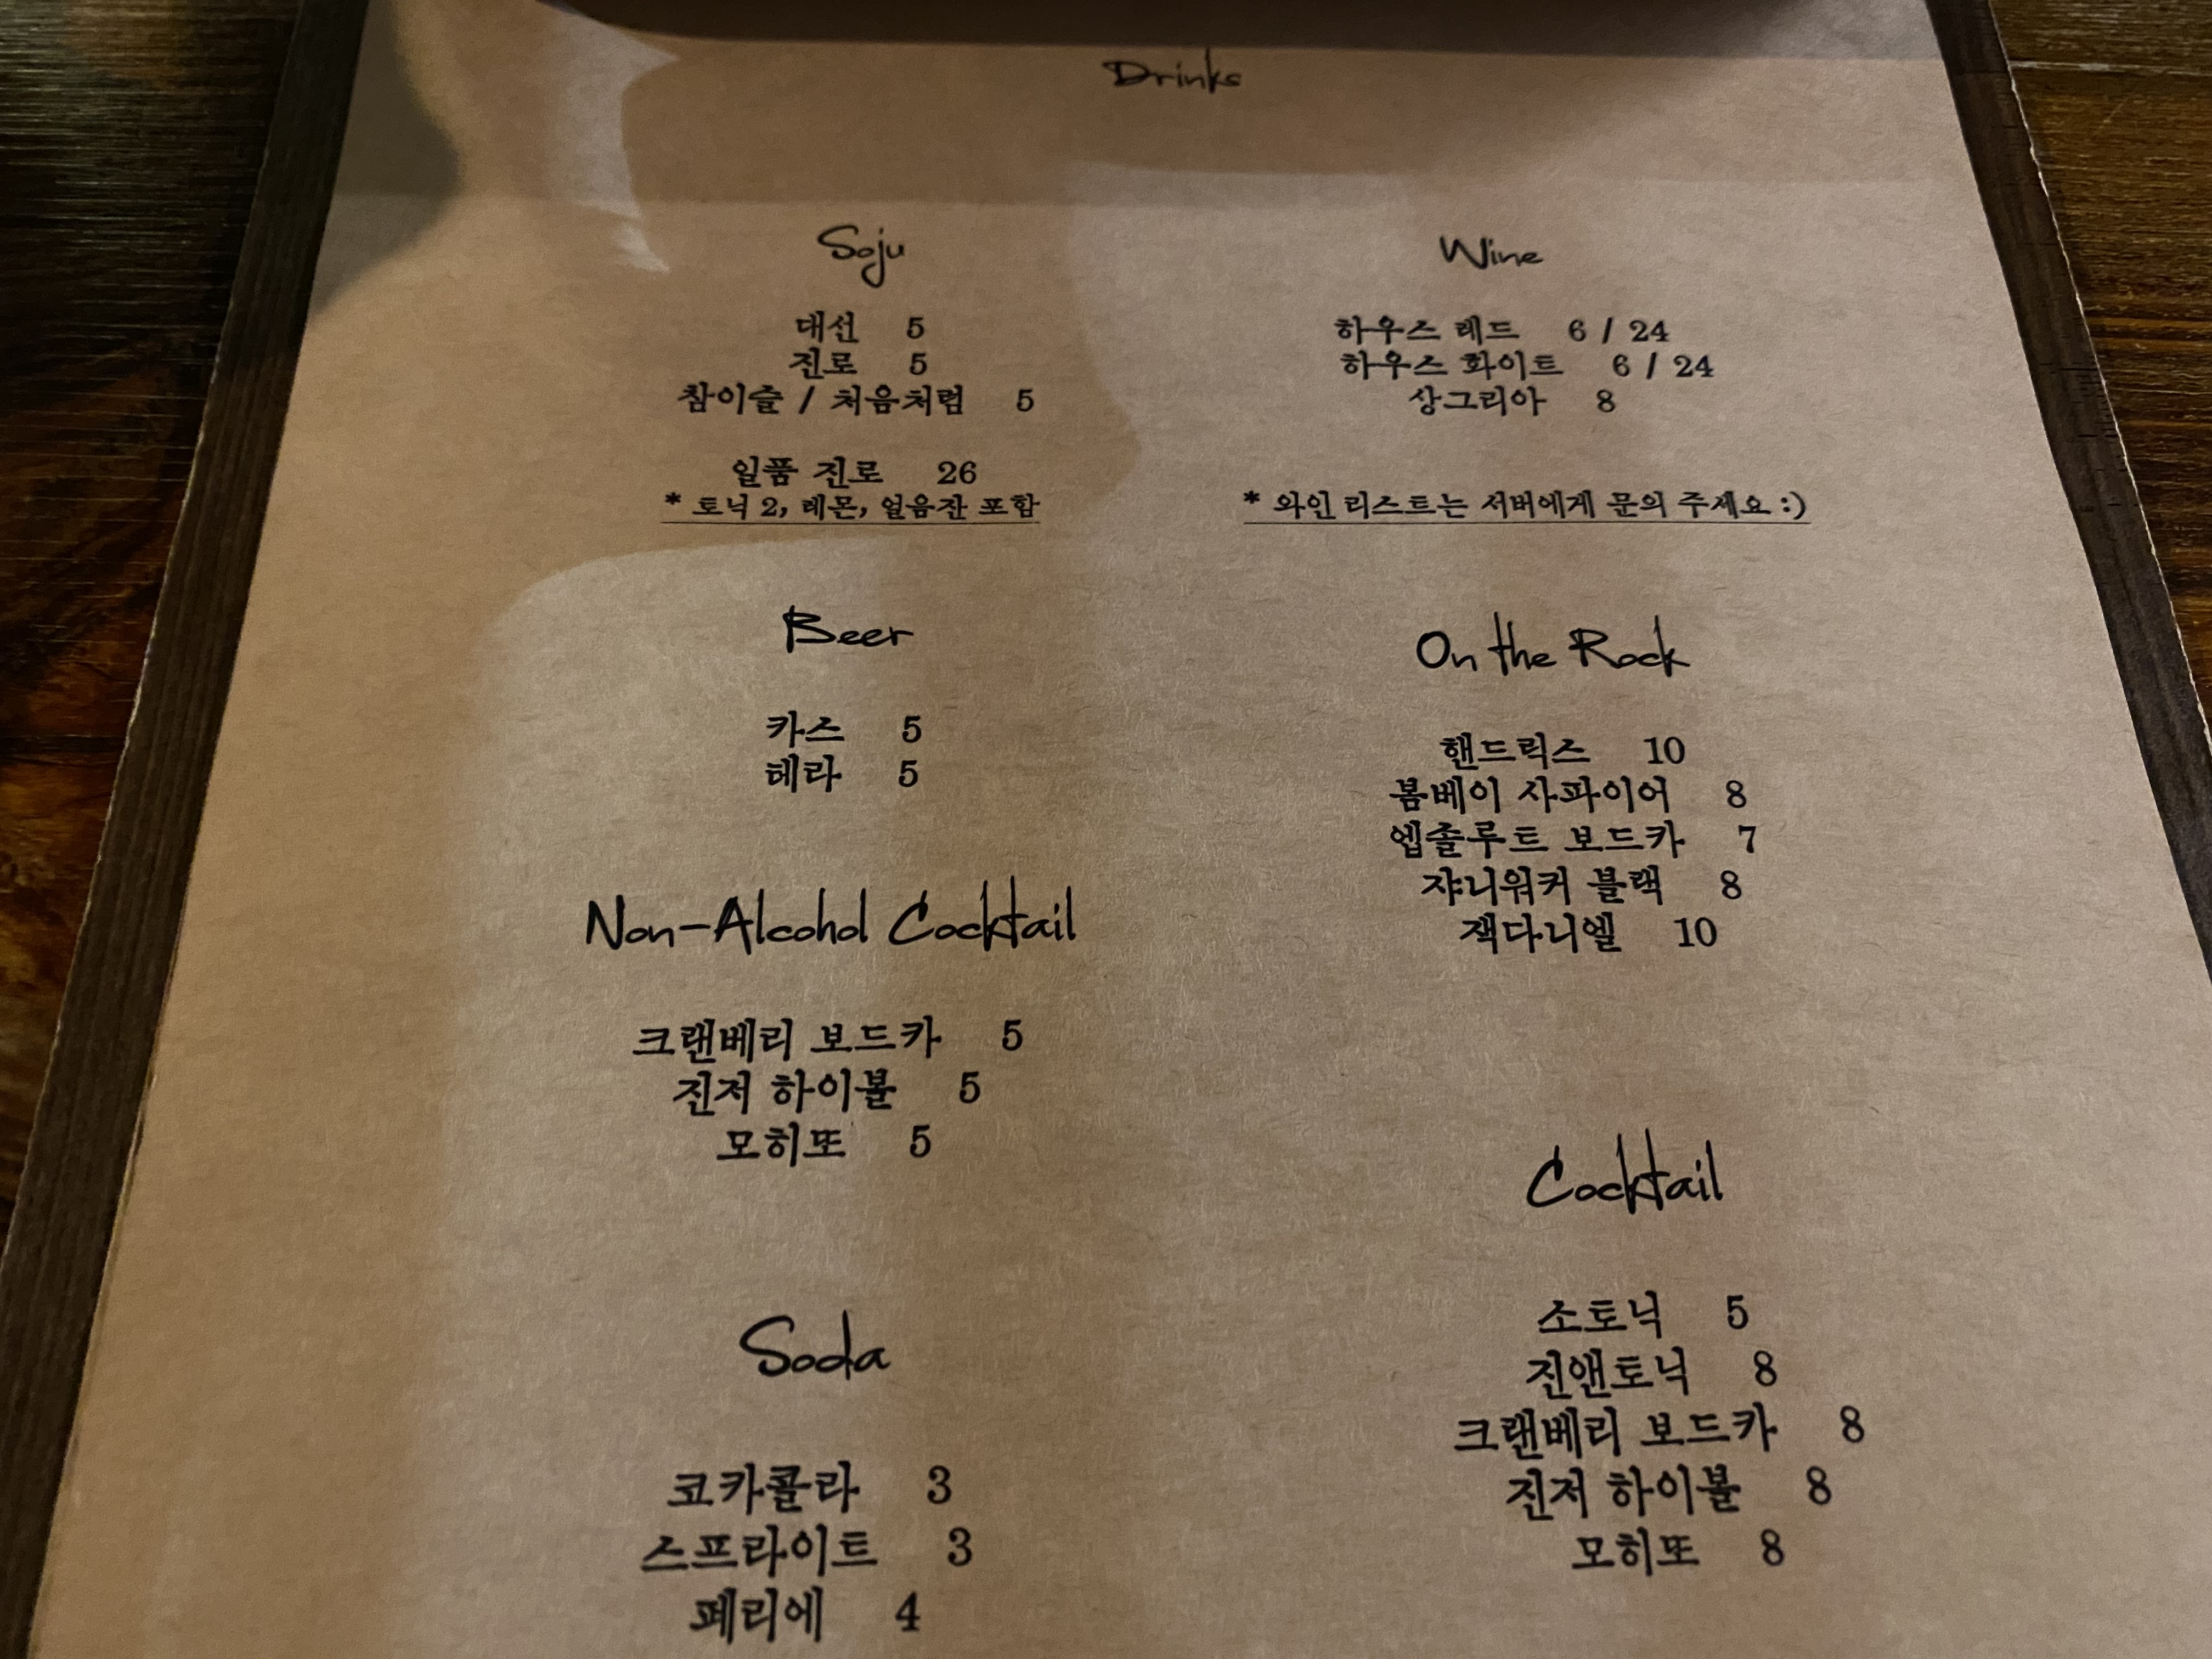 Drinks
Soju
대선 5
진로 5
참이슬 / 처음처럼 5
일품 진로 26
* 토닉 2, 레몬, 얼음잔 포함
Wine
하우스 레드 6 / 24
하우스 화이트 6 / 24
상그리아 8
* 와인 리스트는 서버에게 문의 주세요 :)
Beer
카스 5
테라 5
On the Rock
핸드릭스 10
봄베이 사파이어 8
엡솔루트 보드카 7
쟈니워커 블랙 8
잭다니엘 10
Non-Alcohol Cocktail
크랜베리 보드카 5
진저 하이볼 5
모히또 5
Cocktail
소토닉 5
진앤토닉 8
크랜베리 보드카 8
진저 하이볼 8
모히또 8
Soda
코카콜라 3
스프라이트 3
페리에 4